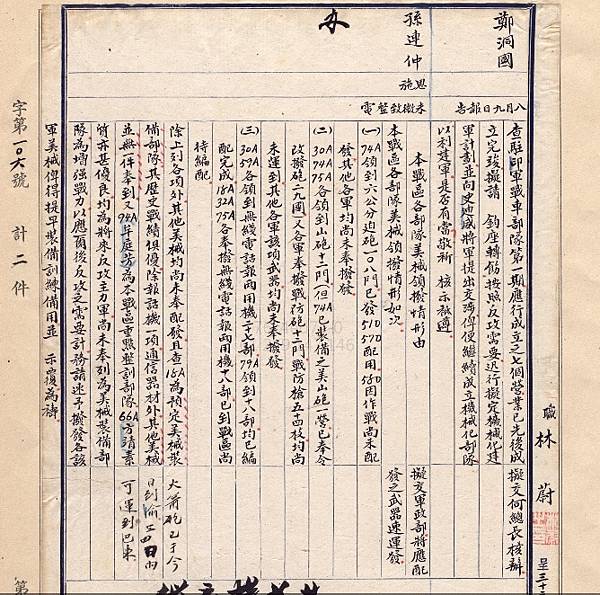 職 林 蔚 呈 三十三
鄭洞國
八月九日報告
查駐印軍戰車部隊第一期應行成立之七個營業已先後成
立完竣擬請 鈞座轉飭按照反攻需要迅行擬定機械化建
軍計劃並向史迪威將軍提出交涉俾便繼續成立機械化部隊
以利建軍是否有當敬祈 核示祗遵
擬交何總長核辦
孫連仲
恩施
未微敘整電
本戰區各部隊美械領撥情形由
本戰區各部隊美械領撥情形如次
(一)74A領到六公分迫砲一〇八門已發51D57D配用58D因作戰尚未配
發其他各軍均尚未奉撥
(二)30A74A75A各領到山砲十二門(但74A已裝備之美山砲一營已奉令
改撥砲二九團)又各軍奉撥戰防砲十二門戰防槍五十四枝均尚
未運到其他各軍該項武器均尚未奉撥發
(三)30A59A各領到無綫電話報兩用機二十七部79A領到十八部均已編
配完成18A32A75A各奉撥無綫電話報兩用機十八部已到戰區尚
待編配
除上列各項外其他美械均尚未奉配發且查18A為預定美械裝
備部隊其歷史戰績俱優除報話機二項通信器材外其他美械
並無件奉到又94A牟庭芳為本戰區重點整訓部隊66A方靖素
質亦甚優良均為將來反攻主力軍尚未奉列為美械裝備部
隊為增強戰力以應爾後反攻之需要計務請速予撥發各該
軍美械俾得提早裝備訓練備用並 示覆為禱
擬交軍政部將應配
發之武器速運發
火箭砲已于今
日到渝二四日內
可運到巴東
字第一〇六號 計二件
第